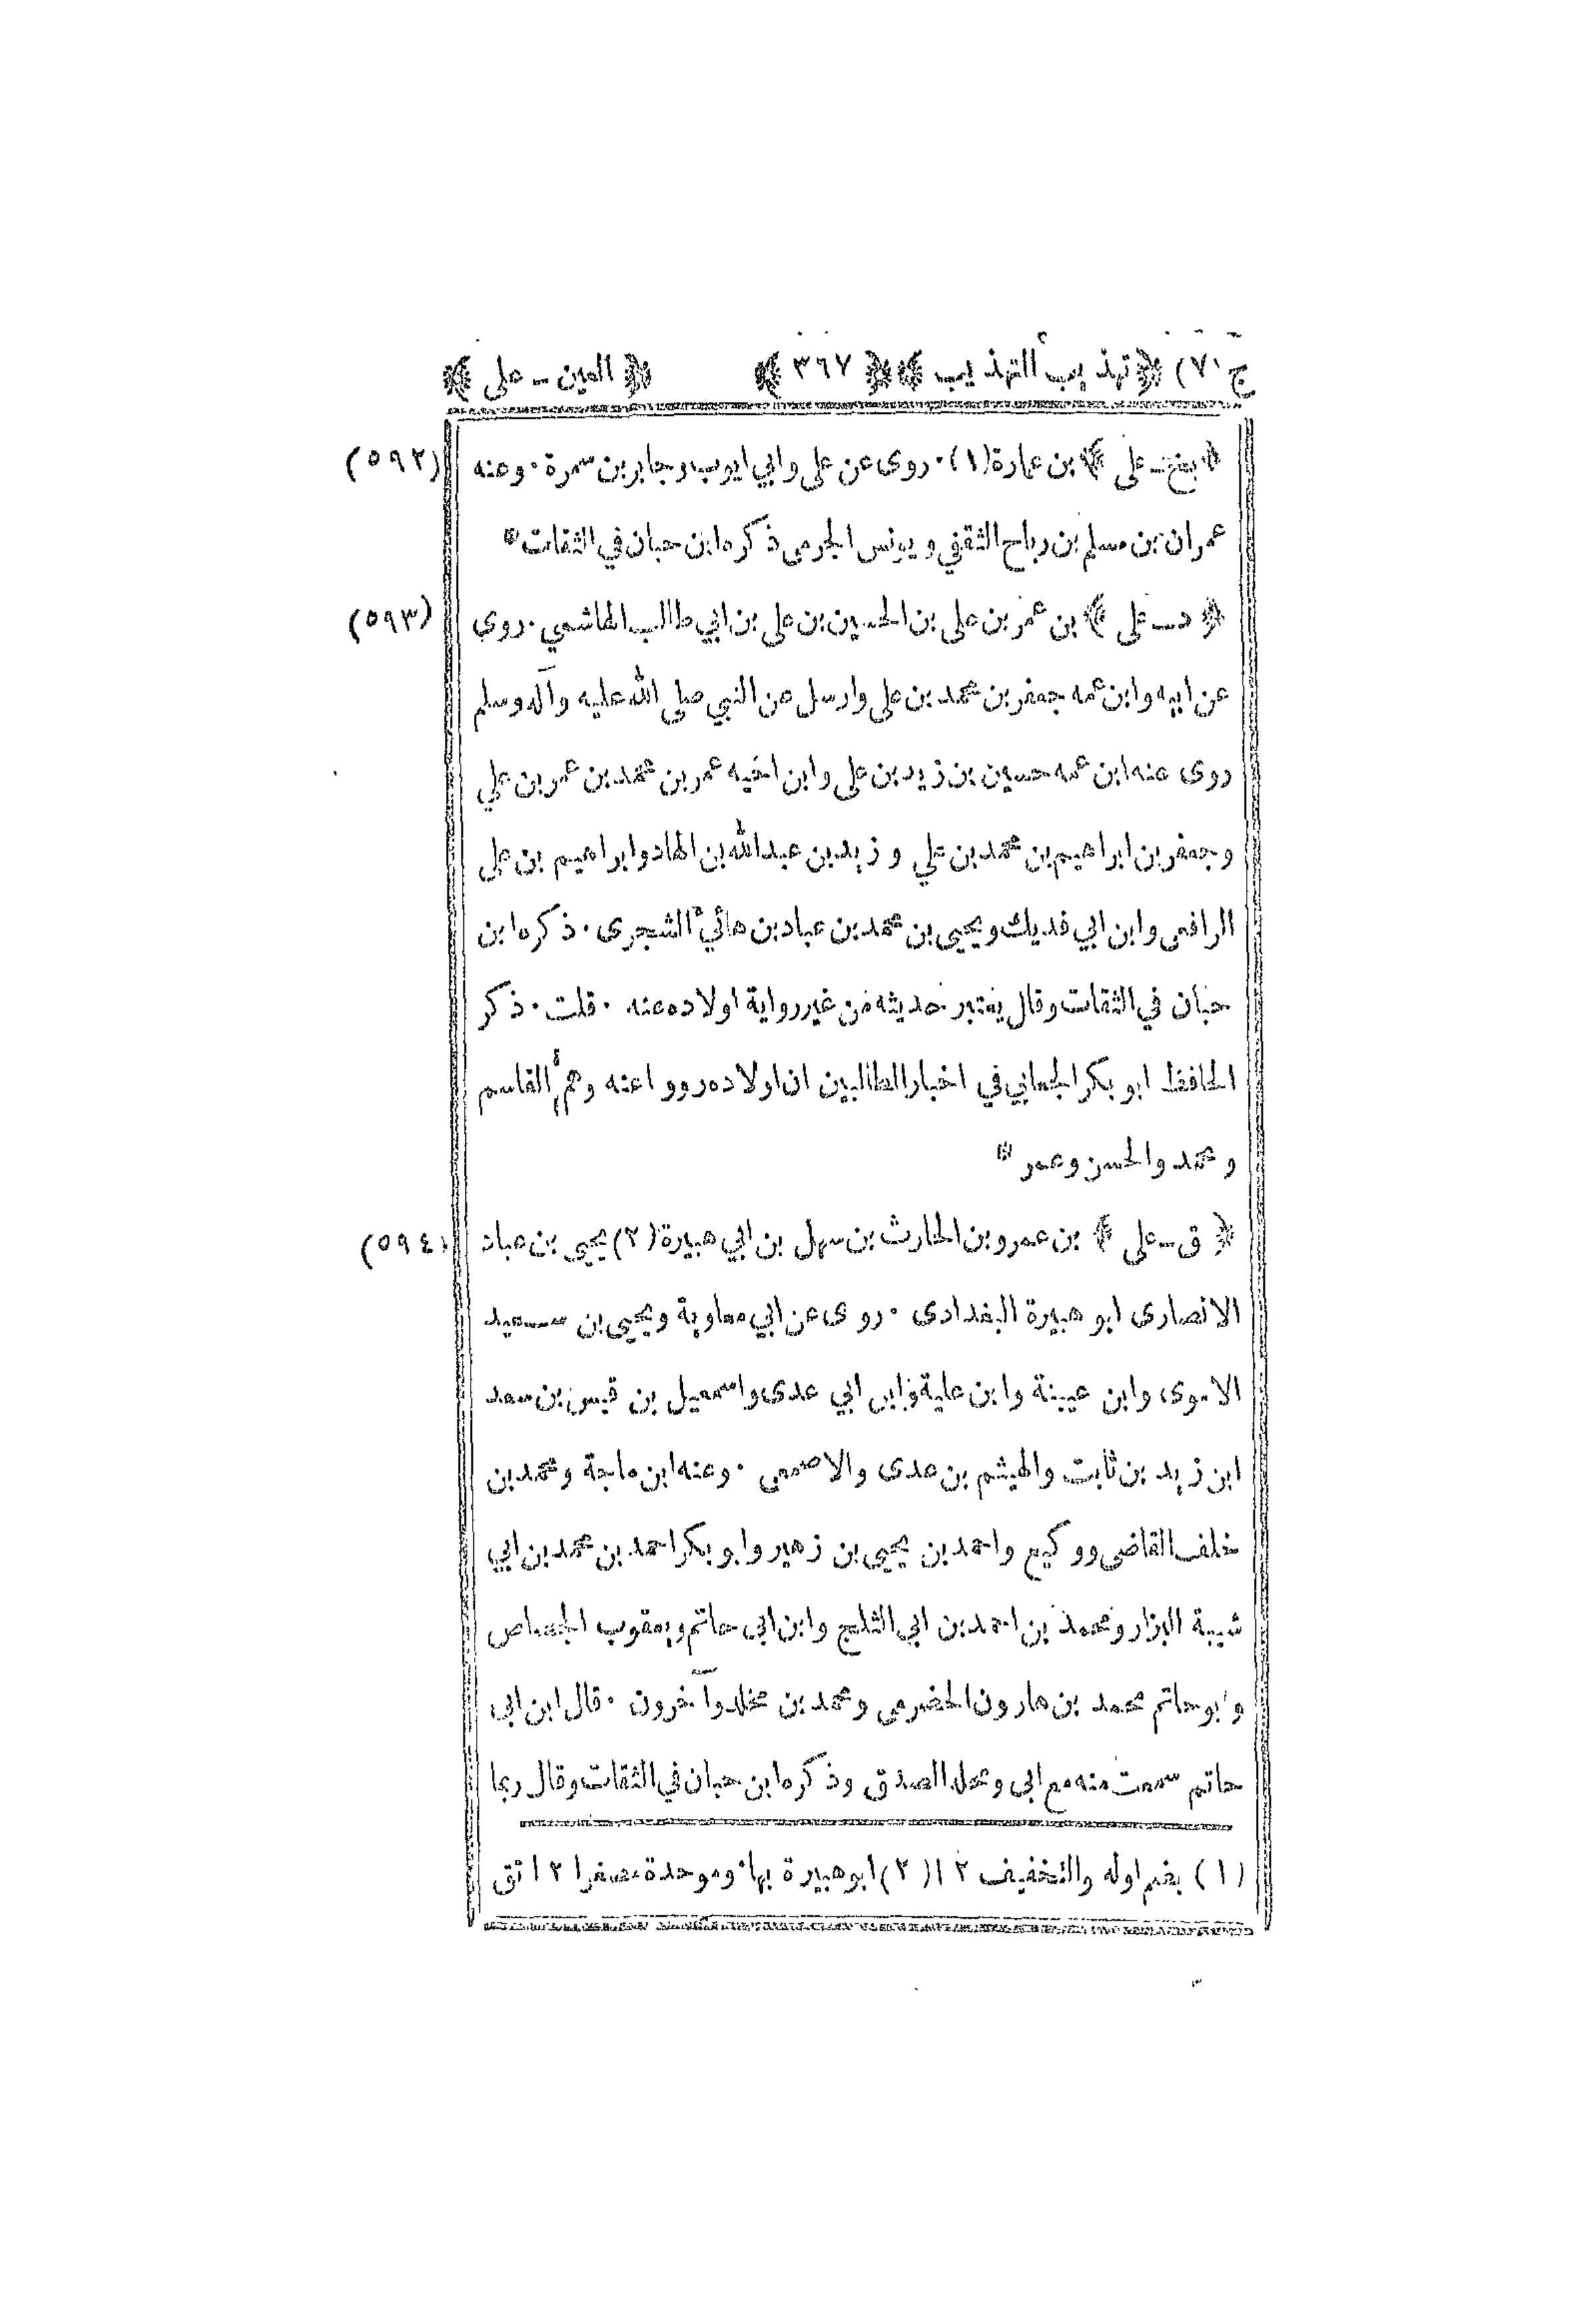 ج (٧) ﴿تهذيب التهذيب﴾ ﴿٣٦٧﴾ ﴿العين - على﴾
﴿بخ - على﴾ بن عمارة (١)٠ روى عن على وابي ايوب وجابر بن سمرة ٠ وعنه (٥٩٢)
عمران بن مسلم بن رباح الثقفي ويونس الجرمى ذكره ابن حبان في الثقات *
﴿د - على﴾ بن عمر بن على بن الحسين بن على بن ابي طالب الهاشمي ٠ روى (٥٩٣)
عن ابيه وابن عمه جعفر بن محمد بن على وارسل عن النبي صلى الله عليه وآله وسلم
روى عنه ابن عمه حسين بن زيد بن على وابن اخيه عمر بن محمد بن عمر بن علي
وجعفر بن ابراهيم بن محمد بن علي و زيد بن عبد الله بن الهاد وابراهيم بن على
الرافعى وابن ابي فديك ويحيى بن محمد بن عباد بن هانئ الشجرى ٠ ذكره ابن
حبان في الثقات وقال يعتبر حديثه من غير رواية اولاده عنه ٠ قلت ٠ ذكر
الحافظ ابو بكر الجعابي في اخبار الطالبين ان اولاده رووا عنه وهم القاسم
و محمد والحسن وعمر *
﴿ق - على﴾ بن عمرو بن الحارث بن سهل بن ابي هبيرة (٢) يحيى بن عباد (٥٩٤)
الانصارى ابو هبيرة البغدادى ٠ روى عن ابي معاوية ويحيى بن سعيد
الاموى وابن عيينة وابن علية وابن ابي عدى واسمعيل بن قيس بن سعد
ابن زيد بن ثابت والهيثم بن عدى والاصمعى ٠ وعنه ابن ماجة ومحمد بن
خلف القاضى ووكيع واحمد بن يحيى بن زهير وابو بكر احمد بن محمد بن ابي
شيبة البزار ومحمد بن احمد بن ابي الثلج وابن ابى حاتم ويعقوب الجصاص
وابو حاتم محمد بن هارون الحضرمى ومحمد بن مخلد وآخرون ٠ قال ابن ابى
حاتم سمعت منه مع ابى ومحله الصدق وذكره ابن حبان في الثقات وقال ربما
(١) بضم اوله والتخفيف ١٢ (٢) ابو هبيرة بهاء وموحدة مصغرا ١٢ تق